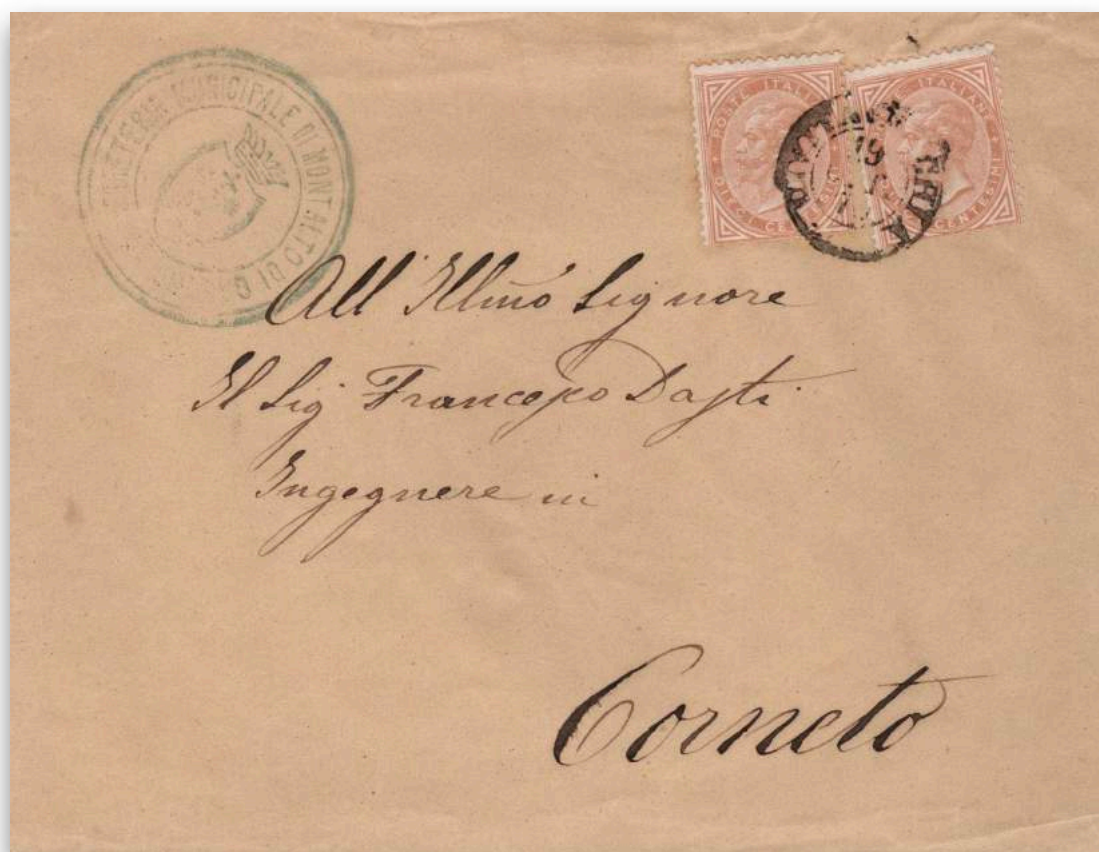 SEGRETERIA MUNICIPALE DI MONTALTO DI CASTRO
POSTE ITALIANE
DIECI CENTESIMI
POSTE ITALIANE
CENTESIMI
19
All' Illmo Signore
Il Sig Francesco Dasti
Ingegnere in
Corneto